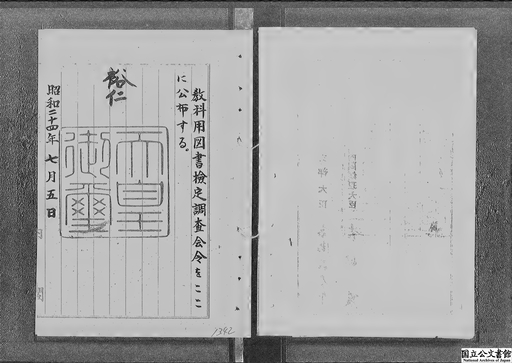 教科用図書検定調査会令をここ
に公布する。
裕仁
天皇
御璽
昭和二十四年七月五日
1342
国立公文書館
National Archives of Japan